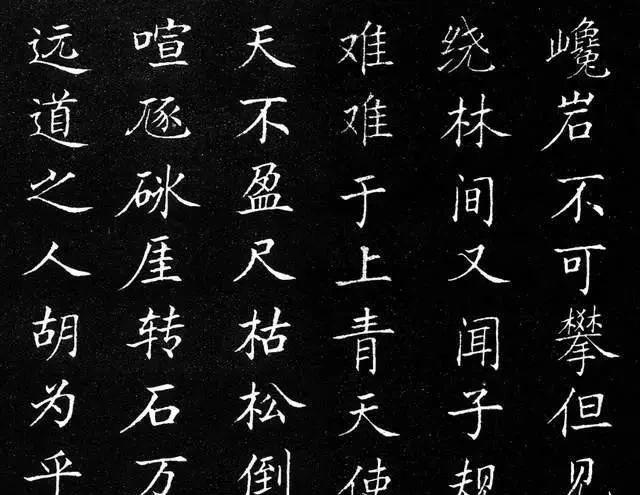 巉岩不可攀但见
绕林间又闻子规
难难于上青天使
天不盈尺枯松倒
喧豗砯厓转石万
远道之人胡为乎